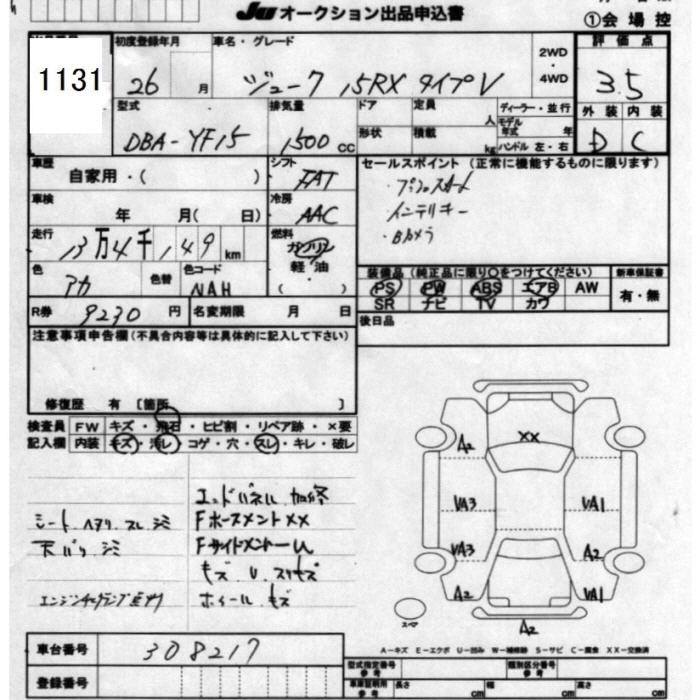 JU オークション出品申込書
①会場控
1131
初度登録年月 車名・グレード 2WD・4WD 評価点
26 月 ジューク 15RX タイプV 3.5
型式 排気量 ドア 定員 人 ディーラー・並行 外装 内装
DBA-YF15 1500 cc 形状 積載 kg モデル年式 年 ハンドル 左・右 D C
車歴 シフト セールスポイント (正常に機能するものに限ります)
自家用・( ) FAT ・プッシュスタート
車検 冷房 ・インテリキー
年 月( 日) AAC ・Bカメラ
走行 燃料
13万4千149km ガソリン
軽油
( )
色 色替 色コード
アカ NAH
装備品 (純正品に限り○をつけてください) 新車保証書
PS PW ABS エアB AW 有・無
SR ナビ TV カワ
R券 9230 円 名変期限 月 日
後日品
注意事項申告欄(不具合内容等は具体的に記入して下さい)
修復歴 有 〔箇所 〕
検査員 FW キズ・飛石・ヒビ割・リペア跡・×要
記入欄 内装 キズ・汚レ・コゲ・穴・スレ・キレ・破レ
エンドパネル 加修
シート ヘタリ スレ シミ Fホースメント XX
天バリ シミ Fサイドメントー U
キズ U
エンジンチェックランプ点灯 ホイール キズ
XX
A2
VA3 VA1
VA3 A2
A2 VA1
スペア A2
A-キズ E-エクボ U-凹み W-補修跡 S-サビ C-腐食 XX-交換済
車台番号 308217
型式指定番号 参考 類別区分番号 参考
登録番号
車庫証明用 参考 長さ cm 幅 cm 高さ cm